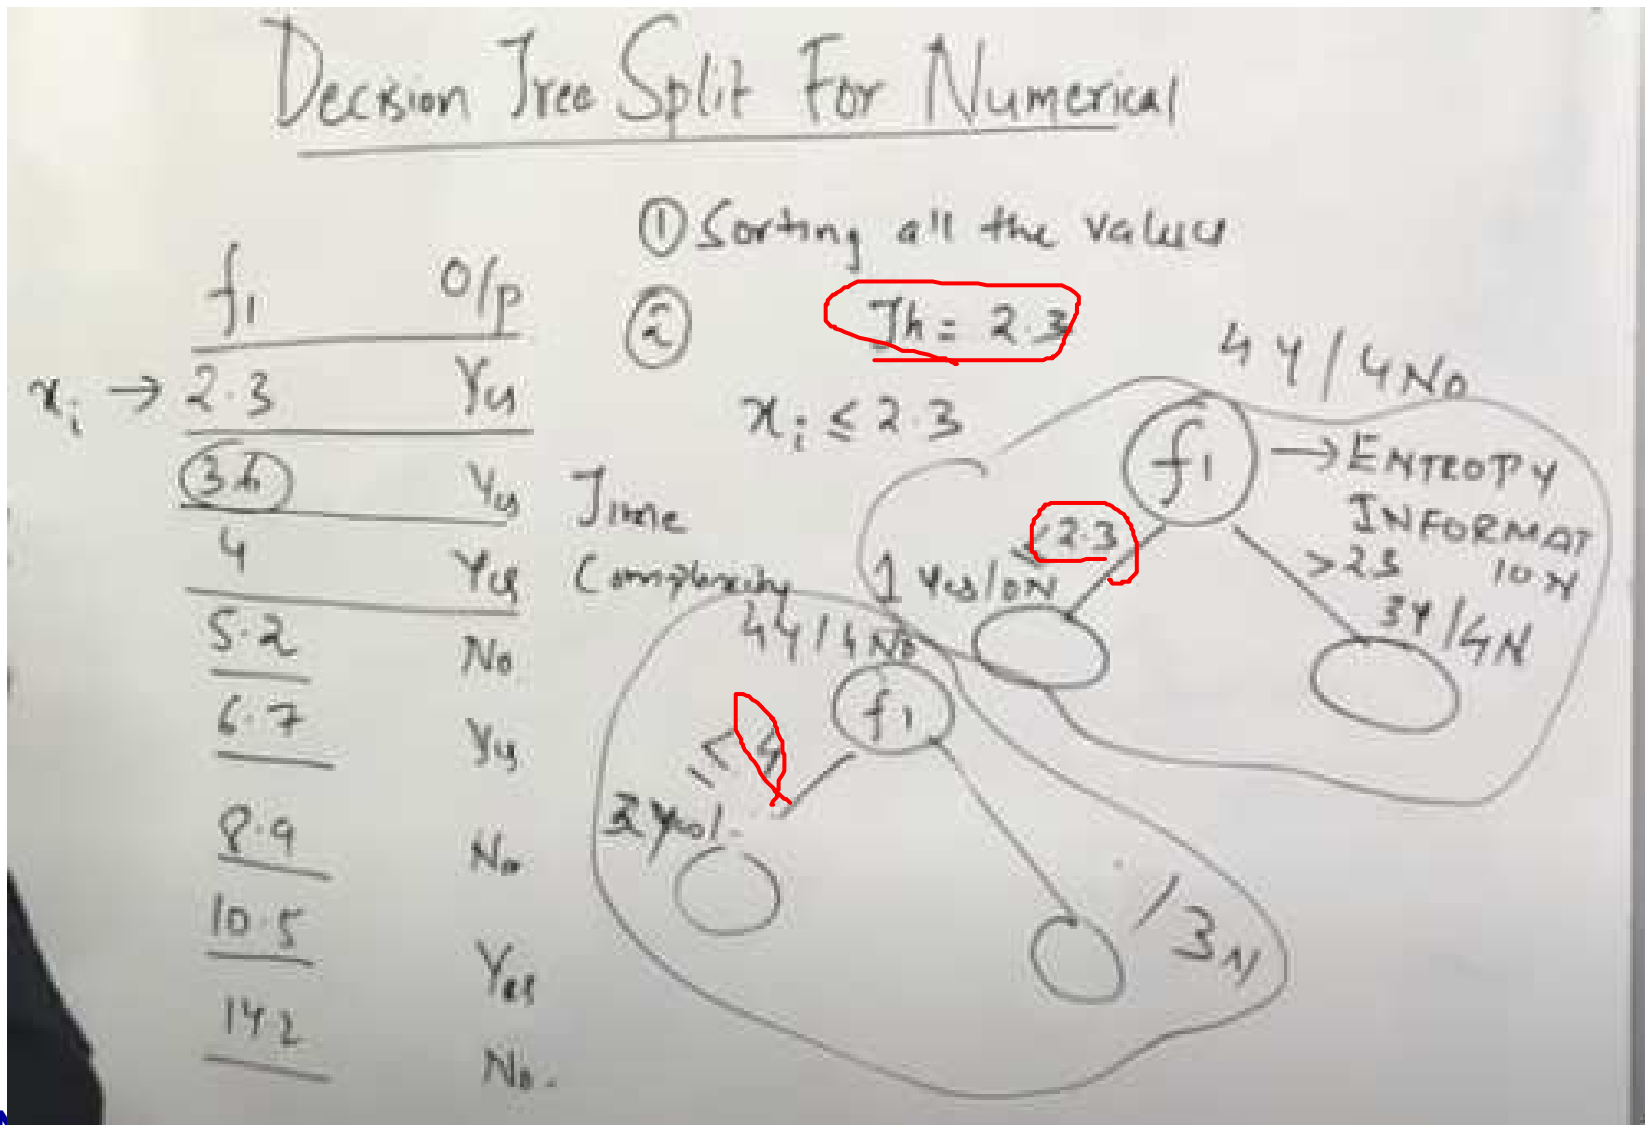 Decision Tree Split For Numerical
① Sorting all the values
② Th = 2.3
xi ≤ 2.3
f1 O/p
xi → 2.3 Yes
Yes
4 Yes
5.2 No
6.7 Yes
8.9 No
10.5 Yes
14.2 No.
Time
Complexity
4Y/4No
f1 → ENTROPY
INFORMAT
ION
≤ 2.3
>2.3
1 Yes/0N
3Y/4N
4Y/4No
f1
≤ 4
/3N